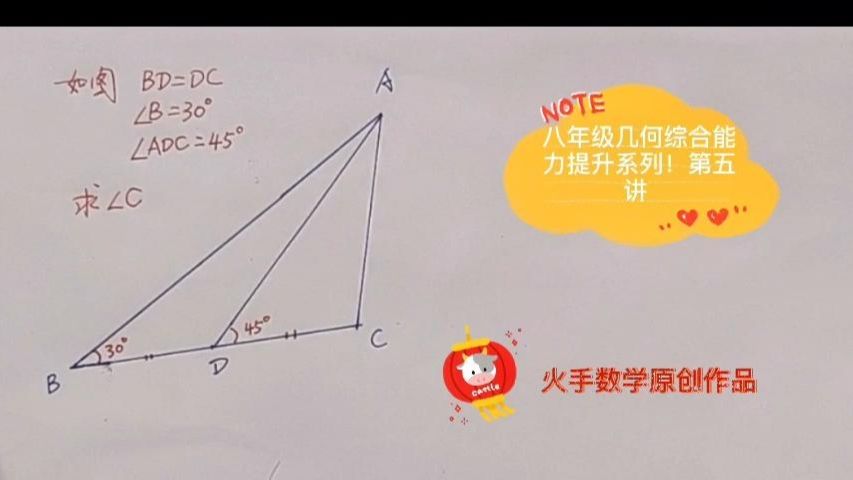 如图 BD=DC
∠B=30°
∠ADC=45°
求∠C
A
30°
45°
B
D
C
NOTE
八年级几何综合能
力提升系列！第五
讲
cattle
火手数学原创作品